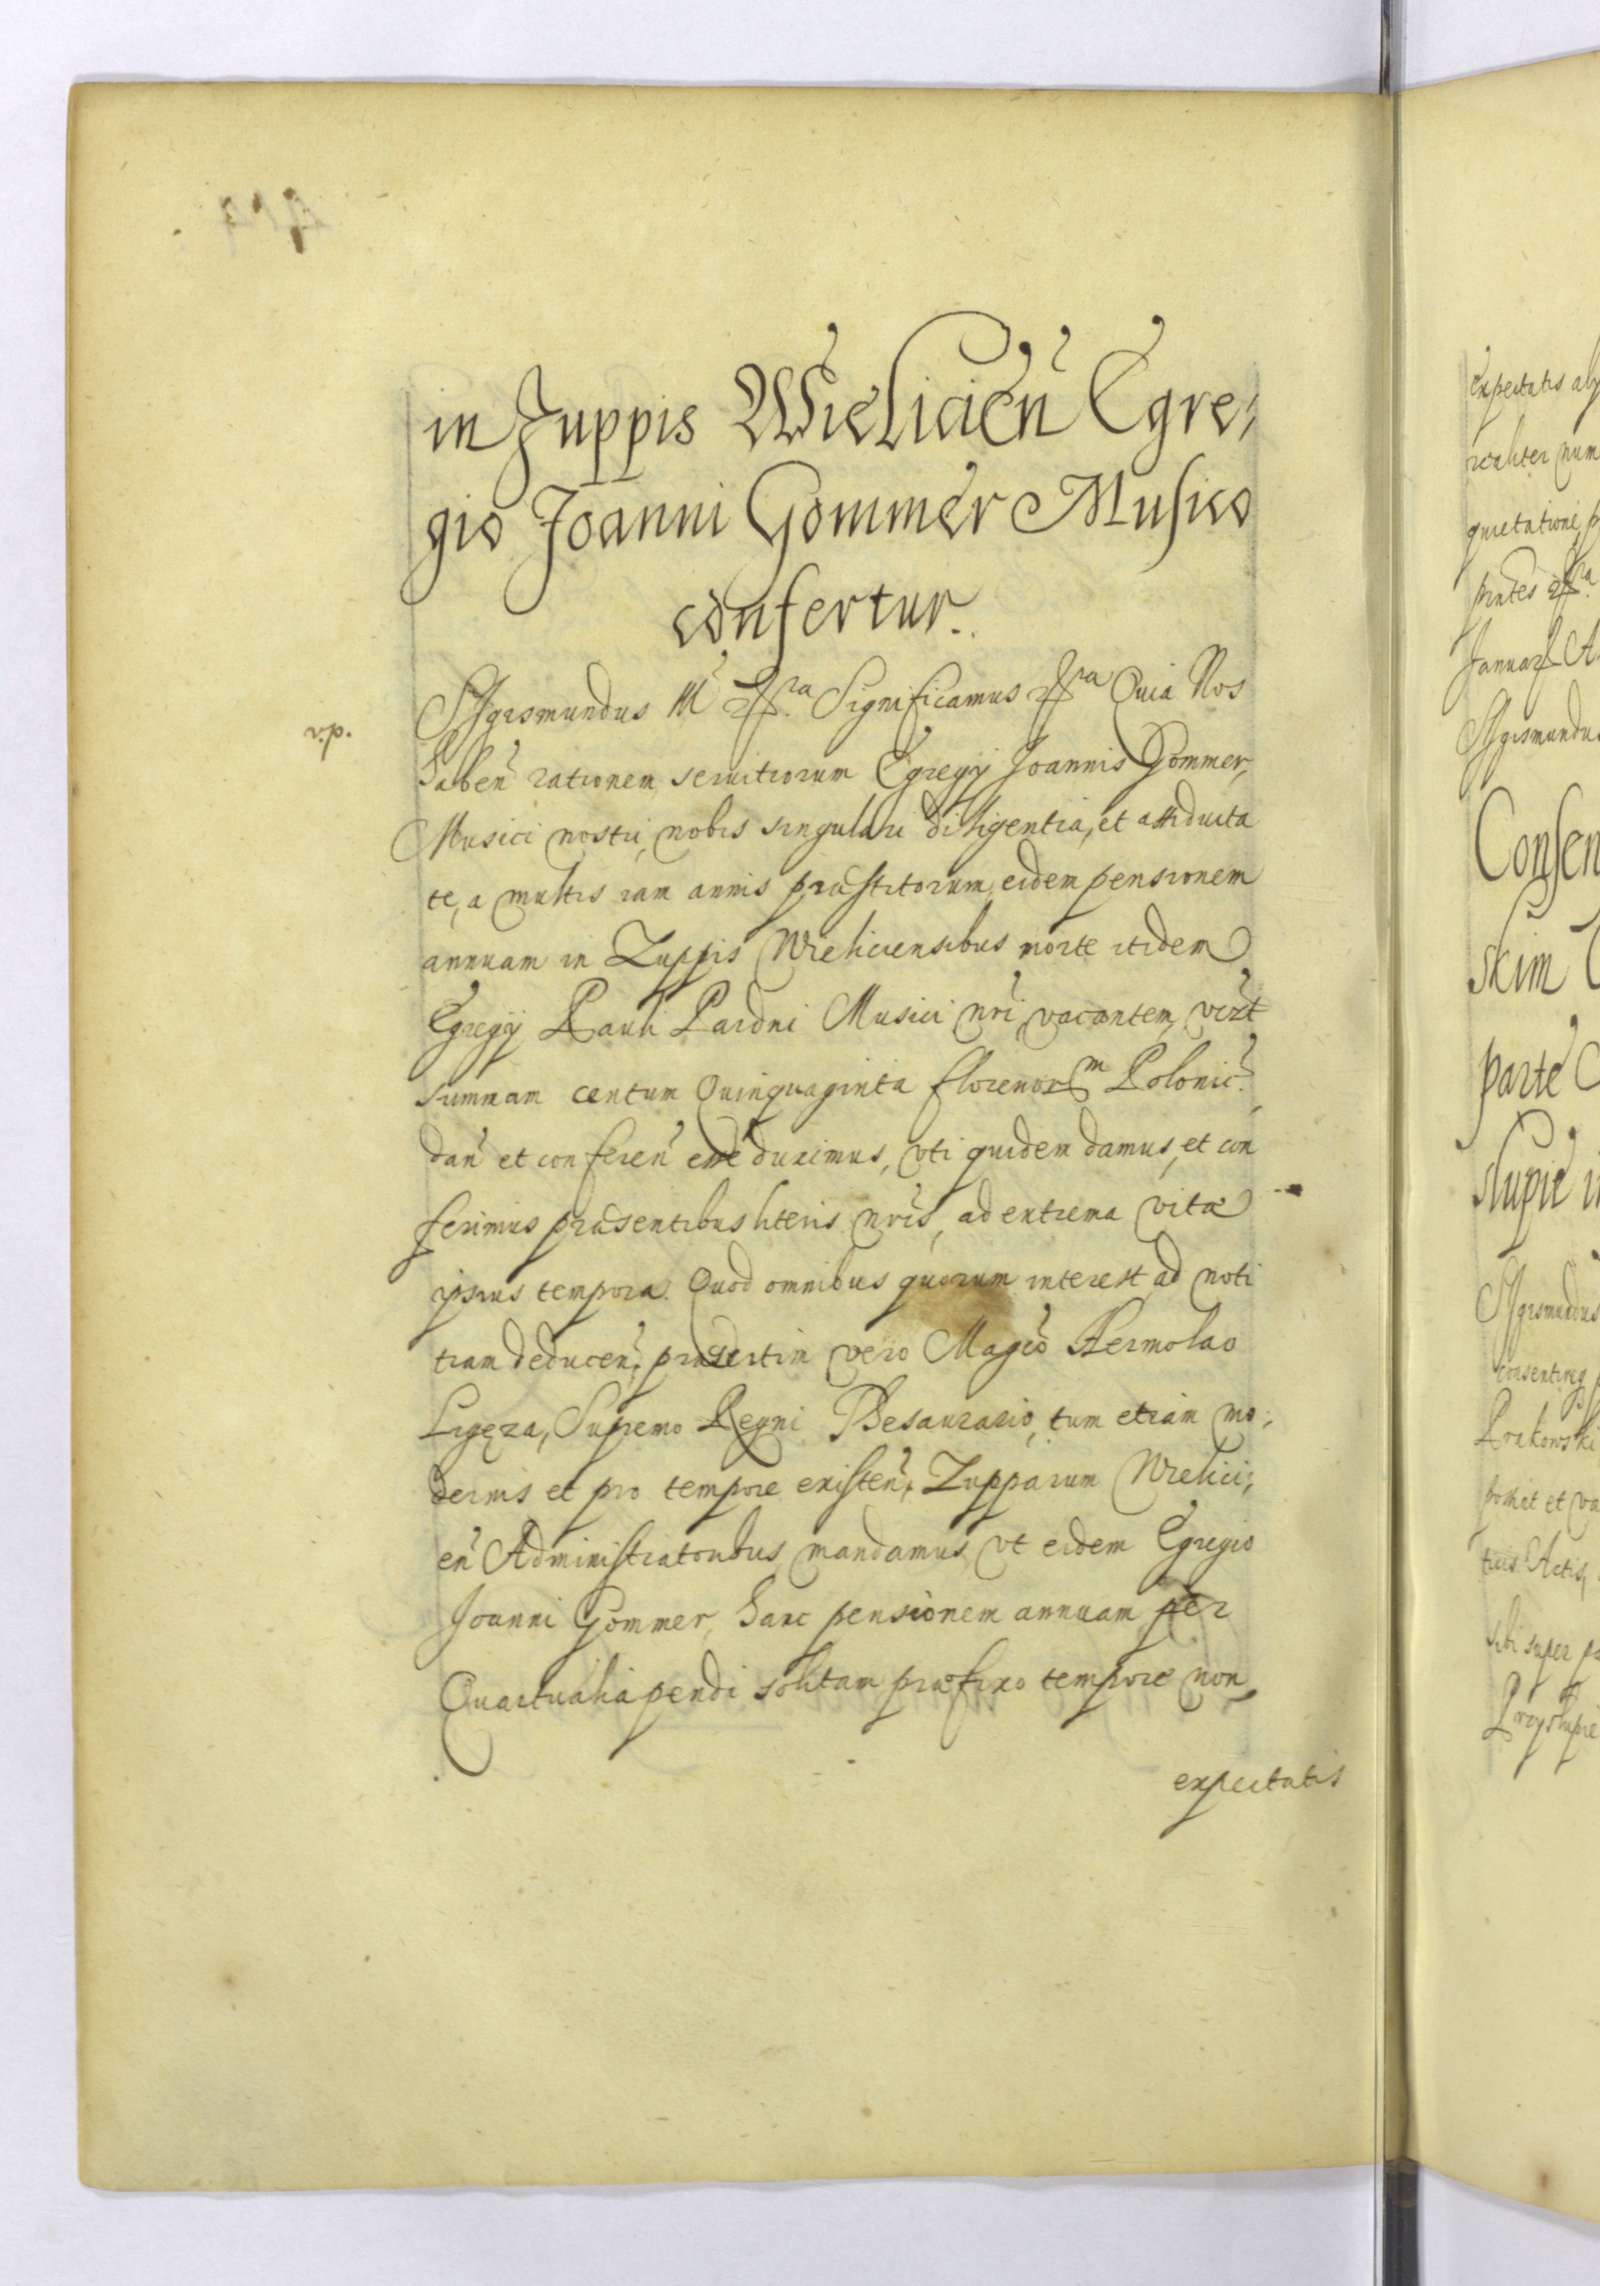 in Zuppis Wielicień Egre:
gio Joanni Gommer Musico
confertur.
Sigismundus III etc.ra Significamus etc.ra Quia Nos
haben̄ rationem seruitiorum Egregij Joannis Gommer,
Musici nostri, nobis singulari diligentia, et assiduita
te, a multis iam annis præstitorum, eidem pensionem
annuam in Zuppis Wieliciensibus morte itidem
Egregij Pauli Pardni Musici nr̄i vacantem, vizt
summam centum Quinquaginta florenorum Polonic̄.
dan̄ et conferen̄ esse duximus, vti quidem damus, et con
ferimus præsentibus literis nr̄is, ad extrema vitæ
ipsius tempora. Quod omnibus quorum interest ad noti
tiam deducen̄, præsertim vero Magco Hermolao
Ligęza, Supremo Regni Thesaurario, tum etiam mo:
dernis et pro tempore existen̄, Zupparum Wielici:
en̄ Administratoribus mandamus vt eidem Egregio
Joanni Gommer, hanc pensionem annuam per
Quartualia pendi solitam præfixo tempore non
expectatis
expectatis
realiter num
quietatione
pn̄tes etc.ra
Januarij A
Sigismundus
Consen
skim
parte
slupie
Sigismundus
consentireq
Krakowski
possit et va
tuis Actis,
sibi super